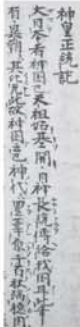 神皇正統記
大日本者神國也天祖始基開日神長統傳給我國此事
有異朝其此故神國云神代豊葦原千五百秋瑞穂國